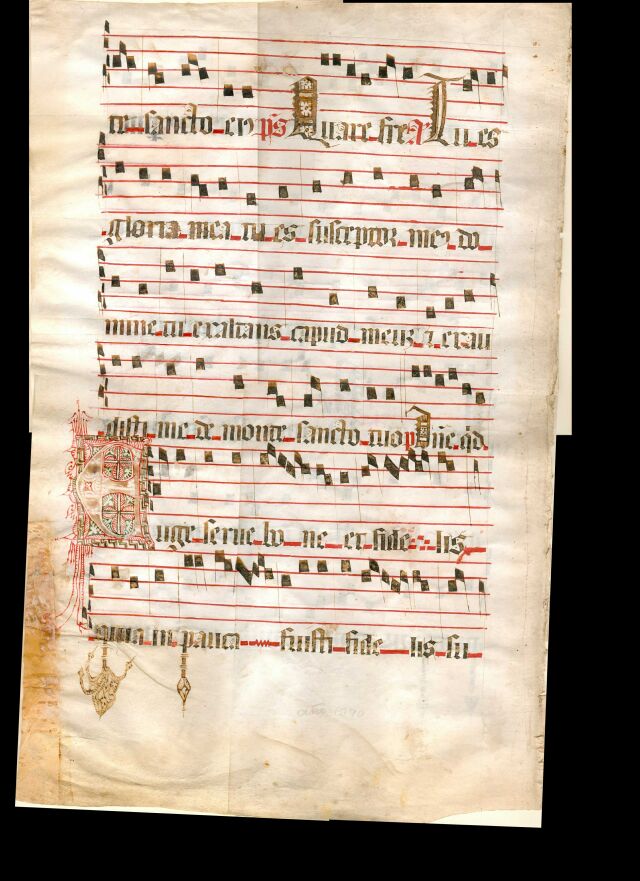 te sancto eiꝰ ps Quare fre a Tu es
gloria mea tu es susceptor meꝰ do
mine tu exaltans capud meuꝫ ⁊ exau
disti me de monte sancto tuo p Dñe qd
Euge serue bo ne et fide lis
quia in pauca fuisti fide lis su